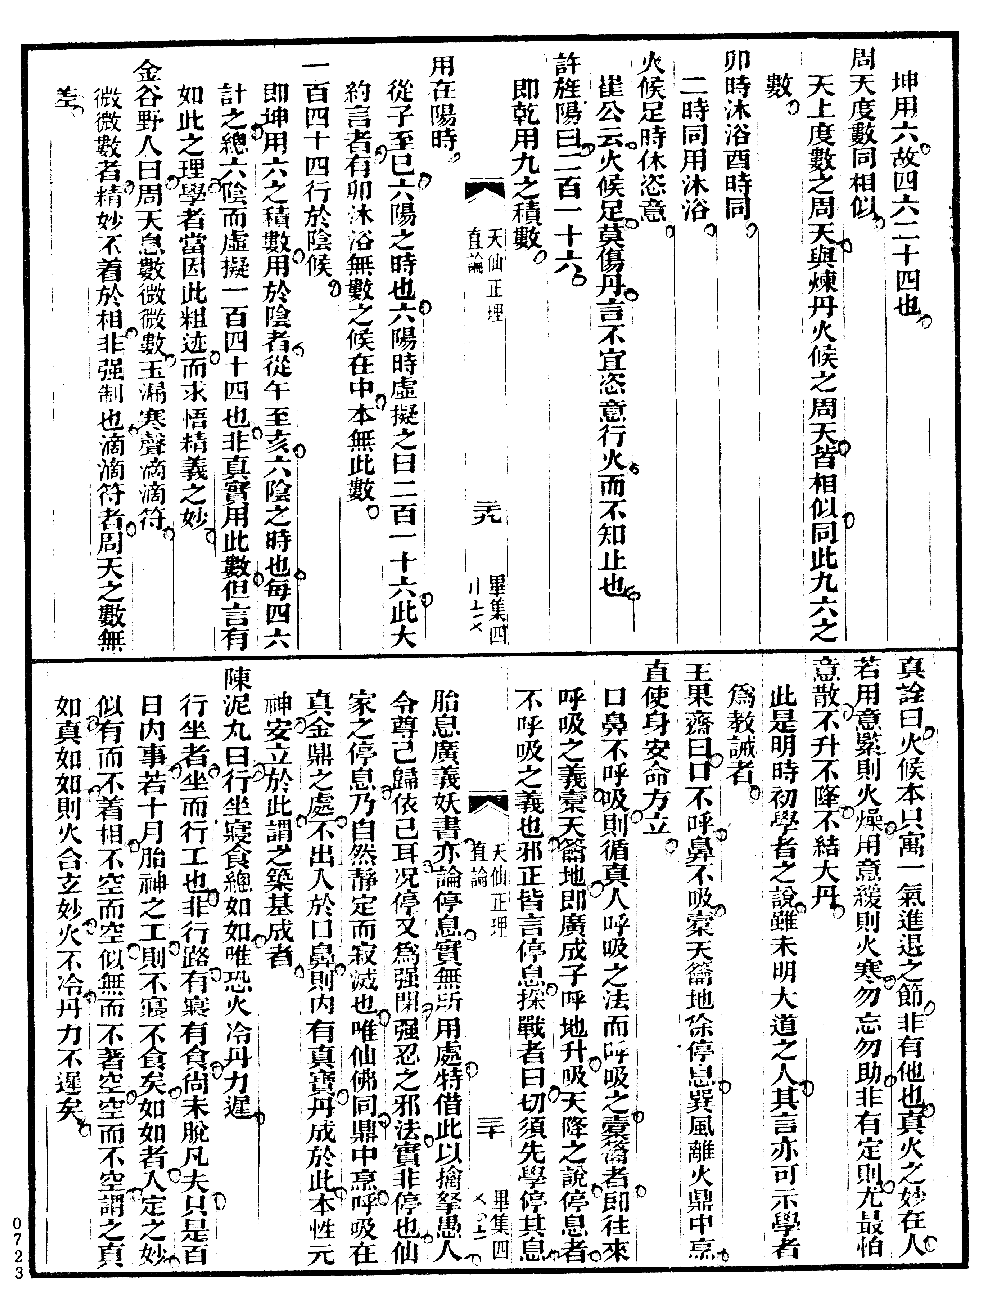 坤用六故四六二十四也
周天度數同相似
天上度數之周天與煉丹火候之周天皆相似同此九六之
數
卯時沐浴酉時同
二時同用沐浴
火候足時休恣意
崔公云火候足莫傷丹言不宜恣意行火而不知止也
許旌陽曰二百一十六
即乾用九之積數
天仙正理
直論
二十九
畢集四
用在陽時
從子至巳六陽之時也六陽時虛擬之曰二百一十六此大
約言者有卯沐浴無數之候在中本無此數
一百四十四行於陰候
即坤用六之積數用於陰者從午至亥六陰之時也每四六
計之總六陰而虛擬一百四十四也非真實用此數但言有
如此之理學者當因此粗迹而求悟精義之妙
金谷野人曰周天息數微微數玉漏寒聲滴滴符
微微數者精妙不着於相非强制也滴滴符者周天之數無
差
真詮曰火候本只寓一氣進退之節非有他也真火之妙在人
若用意緊則火燥用意緩則火寒勿忘勿助非有定則尤最怕
意散不升不降不結大丹
此是明時初學者之說雖未明大道之人其言亦可示學者
為教誡者
王果齋曰口不呼鼻不吸橐天籥地徐停息巽風離火鼎中烹
直使身安命方立
口鼻不呼吸則循真人呼吸之法而呼吸之橐籥者即往來
呼吸之義橐天籥地即廣成子呼地升吸天降之說停息者
不呼吸之義也邪正皆言停息採戰者曰切須先學停其息
天仙正理
直論
三十
畢集四
胎息廣義妖書亦論停息實無所用處特借此以擒拏愚人
令尊己歸依己耳况停又為强閉强忍之邪法實非停也仙
家之停息乃自然靜定而寂滅也唯仙佛同鼎中烹呼吸在
真金鼎之處不出入於口鼻則内有真寶丹成於此本性元
神安立於此謂之築基成者
陳泥丸曰行坐寢食總如如唯恐火冷丹力遲
行坐者坐而行工也非行路有寢有食尚未脫凡夫只是百
日内事若十月胎神之工則不寢不食矣如如者人定之妙
似有而不着相不空而空似無而不著空空而不空謂之真
如真如如則火合玄妙火不冷丹力不遲矣
0723